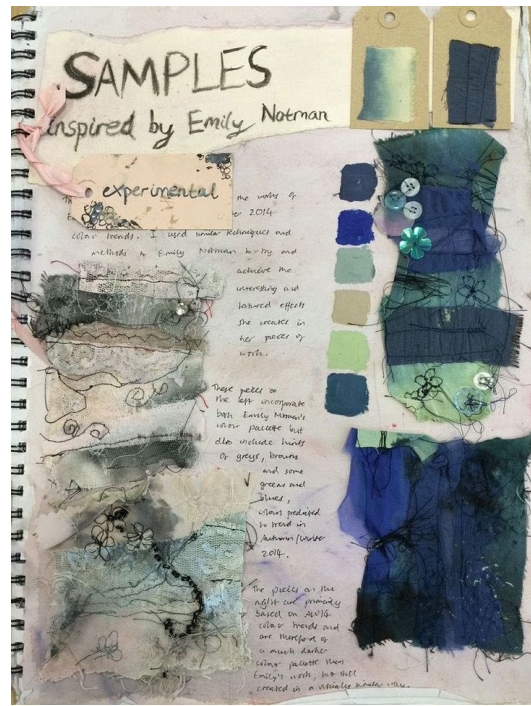 SAMPLES
inspired by Emily Notman
experimental
the works of
2014
colour trends. I used similar techniques and
methods to Emily Notman to try and
achieve the
interesting and
textured effects
she creates in
her pieces of
work.
These pieces on
the left incorporate
both Emily Notman's
colour pallette but
also include hints
of greys, browns
and some
greens and
blues,
colours predicted
to trend in
Autumn/Winter
2014.
The pieces on the
right are primarily
based on AW14
colour trends and
are therefore of
a much darker
colour pallette than
Emily's work, but still
created in a visually similar